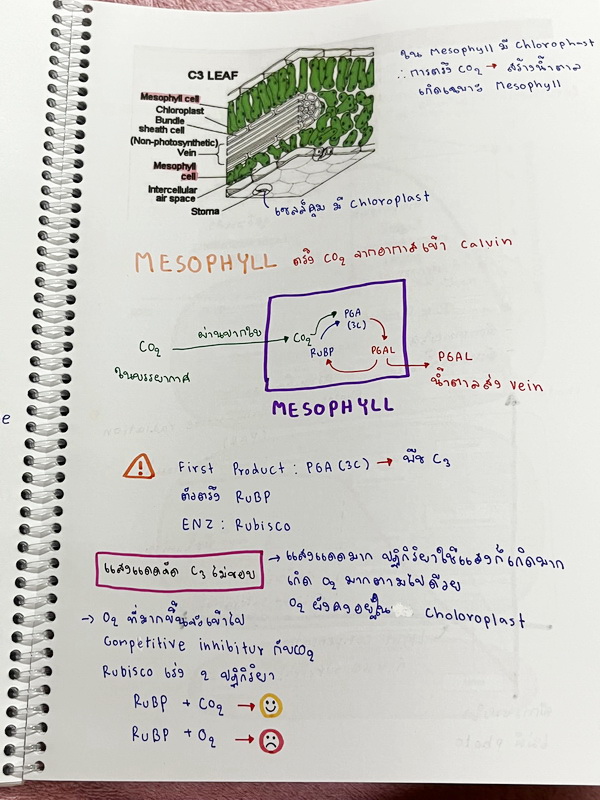 ใน Mesophyll มี Chlorophast
∴ การตรึง CO₂ → สร้างน้ำตาล
เกิดเฉพาะ Mesophyll
C3 LEAF
Mesophyll cell
Chloroplast
Bundle
sheath cell
(Non-photosynthetic)
Vein
Mesophyll
cell
Intercellular
air space
Stoma
เซลล์คุม มี Chloroplast
MESOPHYLL ตรึง CO₂ จากอากาศเข้า Calvin
CO₂
ในบรรยากาศ
ผ่านปากใบ
CO₂
PGA
(3C)
RuBP
PGAL
PGAL
น้ำตาลส่ง Vein
MESOPHYLL
First Product : PGA (3C) → พืช C3
ตัวตรึง RuBP
ENZ : Rubisco
แสงแดดจัด C3 ไม่ชอบ
→ แสงแดดมาก ปฏิกิริยาใช้แสงก็เกิดมาก
เกิด O₂ มากตามไปด้วย
O₂ ยังคงอยู่ใน Choloroplast
→ O₂ ที่มากขึ้น เข้าไป
Competitive inhibitur กับCO₂
Rubisco เร่ง 2 ปฏิกิริยา
RuBP + CO₂ →
RuBP + O₂ →